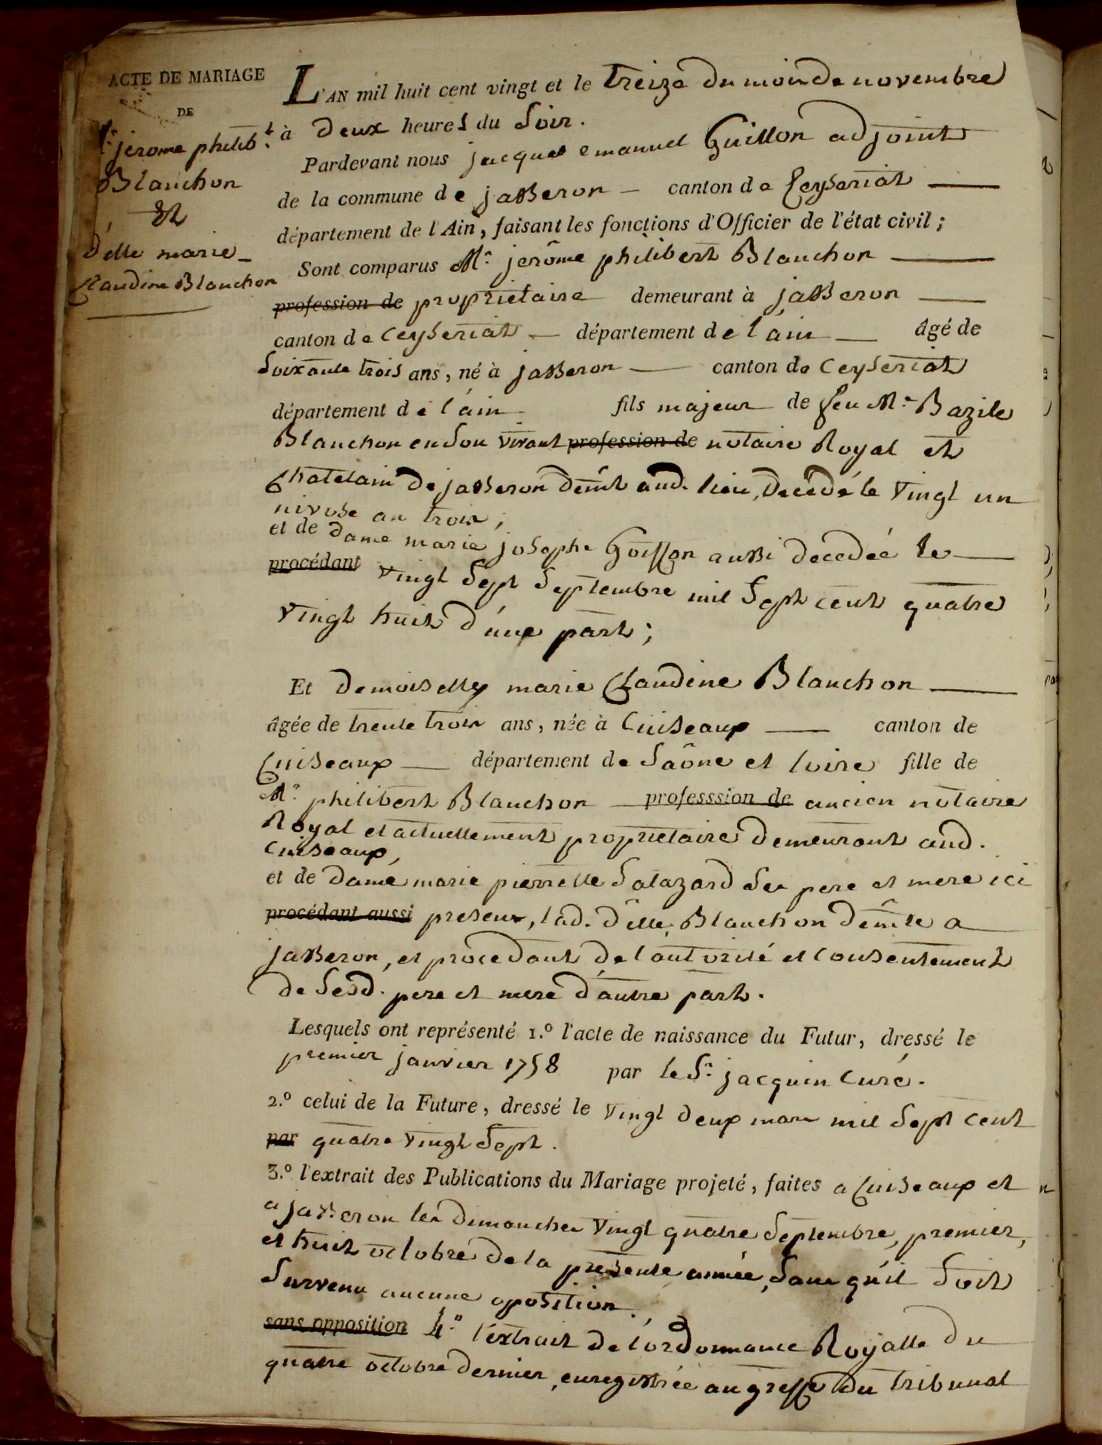 ACTE DE MARIAGE
DE
jerome philib.t
Blanchon
Et
d'elle marie
Claudine Blanchon
L'AN mil huit cent vingt et le treize du mois de novembre
à deux heures du Soir.
Pardevant nous jacques emanuel Guillon adjoint
de la commune de jasseron — canton de Ceyseriat —
département de l'Ain, faisant les fonctions d'Officier de l'état civil;
Sont comparus Mr. jerôme philibert Blanchon —
profession de proprietaire demeurant à jasseron —
canton de Ceyseriat — département de l'ain — âgé de
Soixante trois ans, né à jasseron — canton de Ceyseriat
département de l'ain fils majeur de feu Mr. Bazile
Blanchon en Son vivant profession de notaire Royal et
Chatelain de jasseron demt. aud. lieu, decedé le vingt un
nivose an trois;
et de dame marie josephe Goiffon aussi decedée le —
procédant vingt Sept Septembre mil Sept cent quatre
vingt huit d'une part;
Et demoiselle marie Claudine Blanchon —
âgée de trente trois ans, née à Cuiseaux — canton de
Cuiseaux — département de Saône et loire fille de
Mr. philibert Blanchon — professsion de ancien notaire
Royal et actuellement proprietaire demeurant aud.
Cuiseaux,
et de dame marie pierrette Salazard Ses pere et mere ici
procédant aussi presens, lad. d'elle Blanchon demte a —
jasseron, et procedant de l'autorité et Consentement
de Sesd. pere et mere d'autre part.
Lesquels ont représenté 1.º l'acte de naissance du Futur, dressé le
premier janvier 1758 par le Sr. jacquin Curé.
2.º celui de la Future, dressé le vingt deux mars mil Sept cent
par quatre vingt Sept.
3.º l'extrait des Publications du Mariage projeté, faites a Cuiseaux et
a jasseron les dimanches vingt quatre Septembre, premier,
et huit octobre de la presente année, Sans qu'il Soit
Survenu aucune oposition.
sans opposition 4.º l'extrait de l'ordonnance Royalle du
quatre octobre dernier, enregistrée au greffe du tribunal